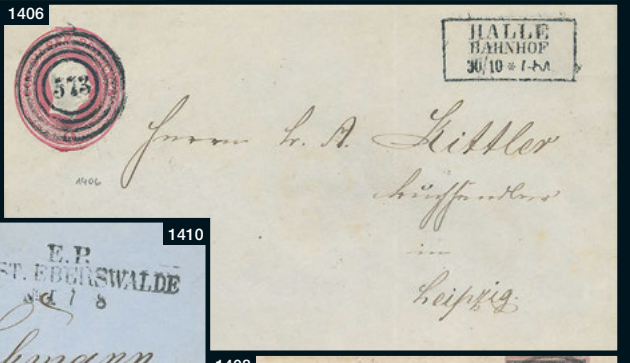 1406
HALLE
BAHNHOF
30/10 *
573
Herrn Kr. A. Kittler
Buchhändler
in
Leipzig.
1406
1410
E.P.
ST. EBERSWALDE
7 8
hmann